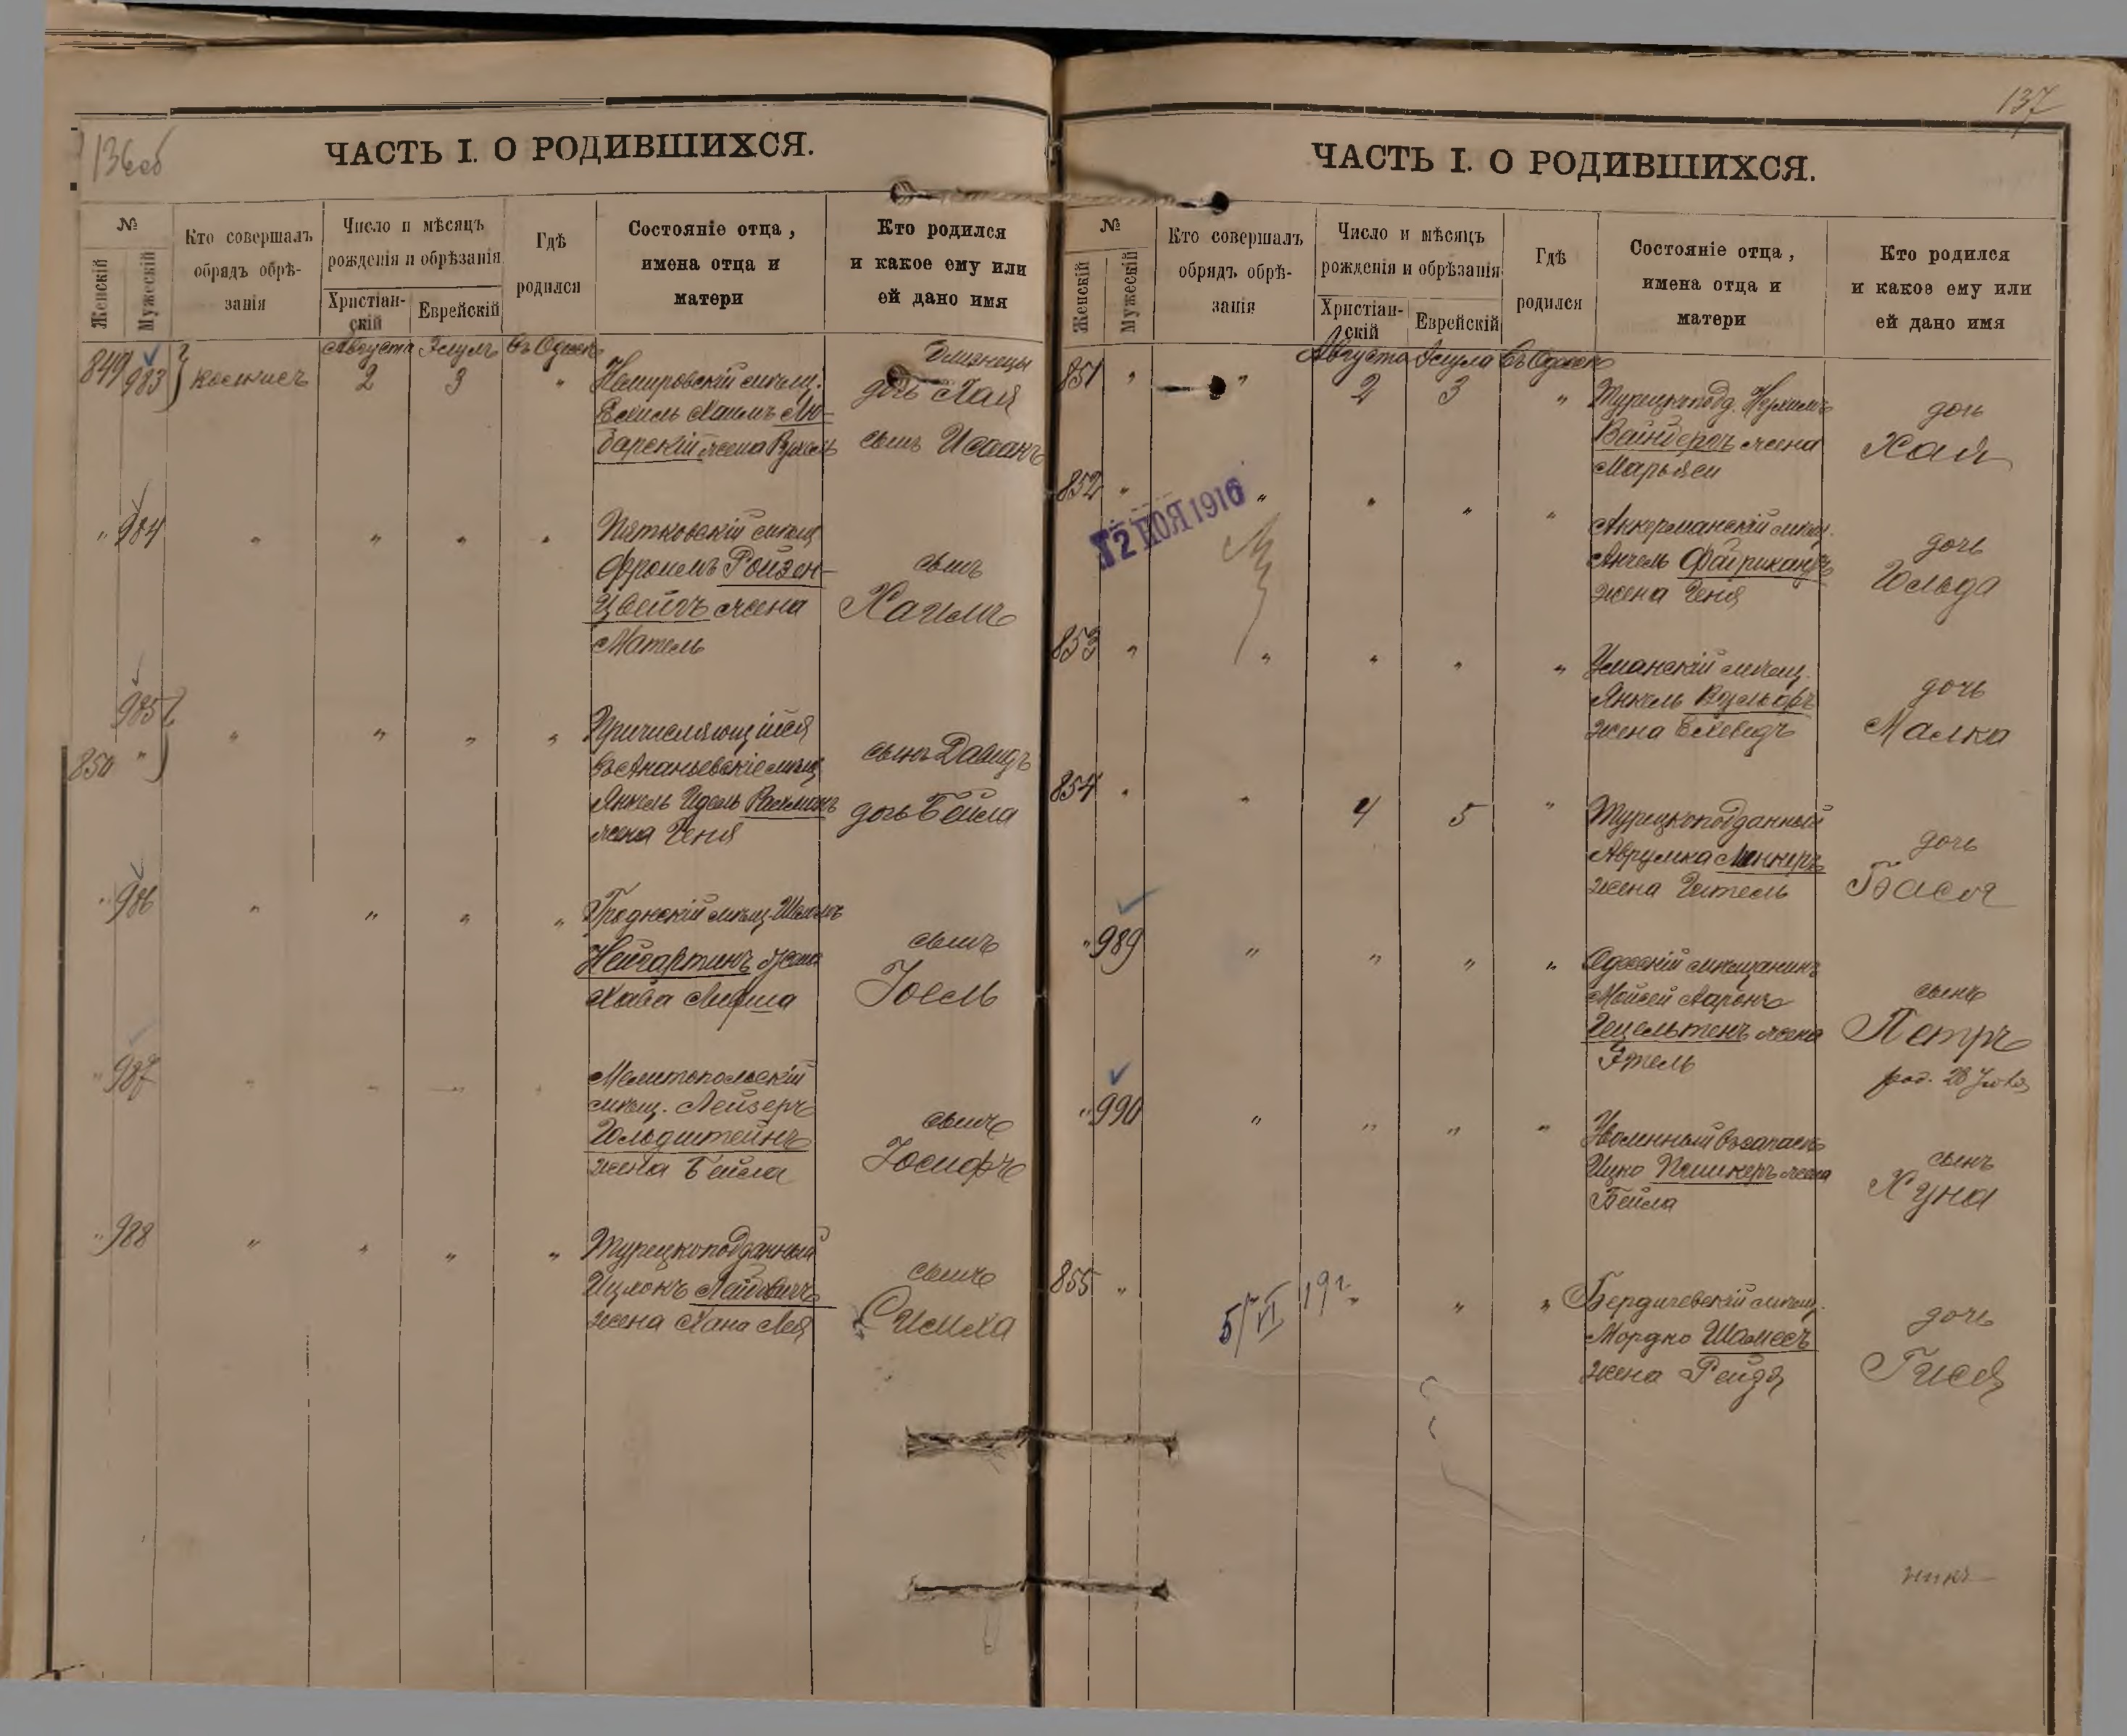 136об
ЧАСТЬ I. О РОДИВШИХСЯ.
№
Женскій
Мужескій
Кто совершалъ
обрядъ обрѣ-
занія
Число и мѣсяцъ
рожденія и обрѣзанія
Христіан-
скій
Еврейскій
Гдѣ
родился
Состояніе отца,
имена отца и
матери
Кто родился
и какое ему или
ей дано имя
Августа Элулъ Въ Одессѣ
849 983 2 3 "
Немировскій мѣщ.
Хаимъ Лю-
барскій жена Рухль
близнецы
дочь Хая
сынъ Исаакъ
" 984 " " " "
Пятковскій мѣщ
Фроимъ Ройзен-
цвейгъ жена
Матель
сынъ
Хаимъ
985
850 " " " " "
Причисляющійся
въ Ананьевскіе мѣщ
Янкель Идель Рахманъ
жена Геня
сынъ Давидъ
дочь Бейла
" 986 " " " "
Гродненскій мѣщ. Шоломъ
Нейгартинъ жена
Хава Лифша
сынъ
Іоель
" 987 " " " "
Мелитопольскій
мѣщ. Лейзеръ
Гольдштейнъ
жена Бейла
сынъ
Іосифъ
" 988 " " " "
Турецкоподданный
Ицхокъ Лейбовичъ
жена Хана Лея
сынъ
Симха
137
ЧАСТЬ I. О РОДИВШИХСЯ.
№
Женскій
Мужескій
Кто совершалъ
обрядъ обрѣ-
занія
Число и мѣсяцъ
рожденія и обрѣзанія
Христіан-
скій
Еврейскій
Гдѣ
родился
Состояніе отца,
имена отца и
матери
Кто родился
и какое ему или
ей дано имя
Августа Элула Въ Одессѣ
851 " " 2 3 "
Турецкопод. Нухимъ
Вайнберъ жена
Марьяси
дочь
Хая
852 " " " " "
12 НОЯ 1916
Аккерманскій мѣщ.
Анчель Фабрикантъ
жена Геня
дочь
Гольда
853 " " " " "
Уманскій мѣщ.
Янкель
жена
дочь
Малка
854 " " 4 5 "
Турецкоподданный
Аврумка Линкеръ
жена Гитель
дочь
Бася
" 989 " " " "
Одесскій мѣщанинъ
Мойсей Ааронъ
Гецельтенъ жена
Этель
сынъ
Петръ
род. 28 Іюля
" 990 " " " "
Уволенный въ запасъ
Ицко жена
Бейла
сынъ
Хуна
855 " " " "
5/VI 19 г.
Бердичевскій мѣщ.
Мордко Шамесъ
жена Рейзя
дочь
Гися